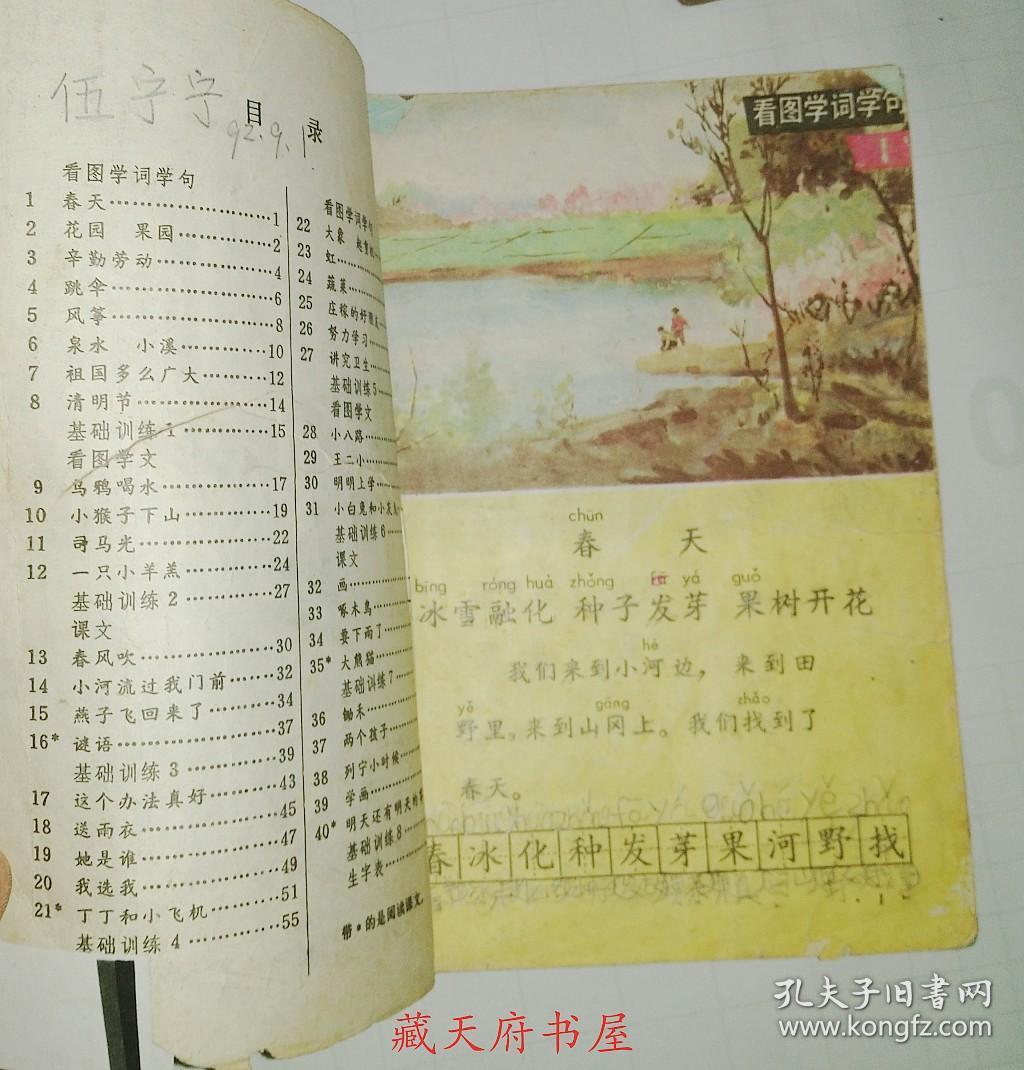 伍宁宁
目 录
92.9.1
看图学词学句
1 春天……………………1
2 花园 果园……………2
3 辛勤劳动………………4
4 跳伞……………………6
5 风筝……………………8
6 泉水 小溪……………10
7 祖国多么广大…………12
8 清明节…………………14
基础训练1………………15
看图学文
9 乌鸦喝水………………17
10 小猴子下山……………19
11 司马光…………………22
12 一只小羊羔……………24
基础训练2………………27
课文
13 春风吹…………………30
14 小河流过我门前………32
15 燕子飞回来了…………34
16* 谜语……………………37
基础训练3………………39
17 这个办法真好…………43
18 送雨衣…………………45
19 她是谁…………………47
20 我选我…………………49
21* 丁丁和小飞机…………51
基础训练4………………55
看图学词学句
22 大象 起重机
23 虹
24 蔬菜
25 庄稼的好朋友
26 努力学习
27 讲究卫生
基础训练5
看图学文
28 小八路
29 王二小
30 明明上学
31 小白兔和小灰兔
基础训练6
课文
32 画
33 啄木鸟
34 要下雨了
35* 大熊猫
基础训练7
36 锄禾
37 两个孩子
38 列宁小时候
39 学画
40* 明天还有明天的
基础训练8
生字表
带*的是阅读课文
看图学词学句
1
chūn
春 天
bīng róng huà zhǒng fā yá guǒ
冰雪融化 种子发芽 果树开花
hé
我们来到小河边，来到田
yě gāng zhǎo
野里，来到山冈上。我们找到了
春天。
春冰化种发芽果河野找
孔夫子旧书网
www.kongfz.com
藏天府书屋